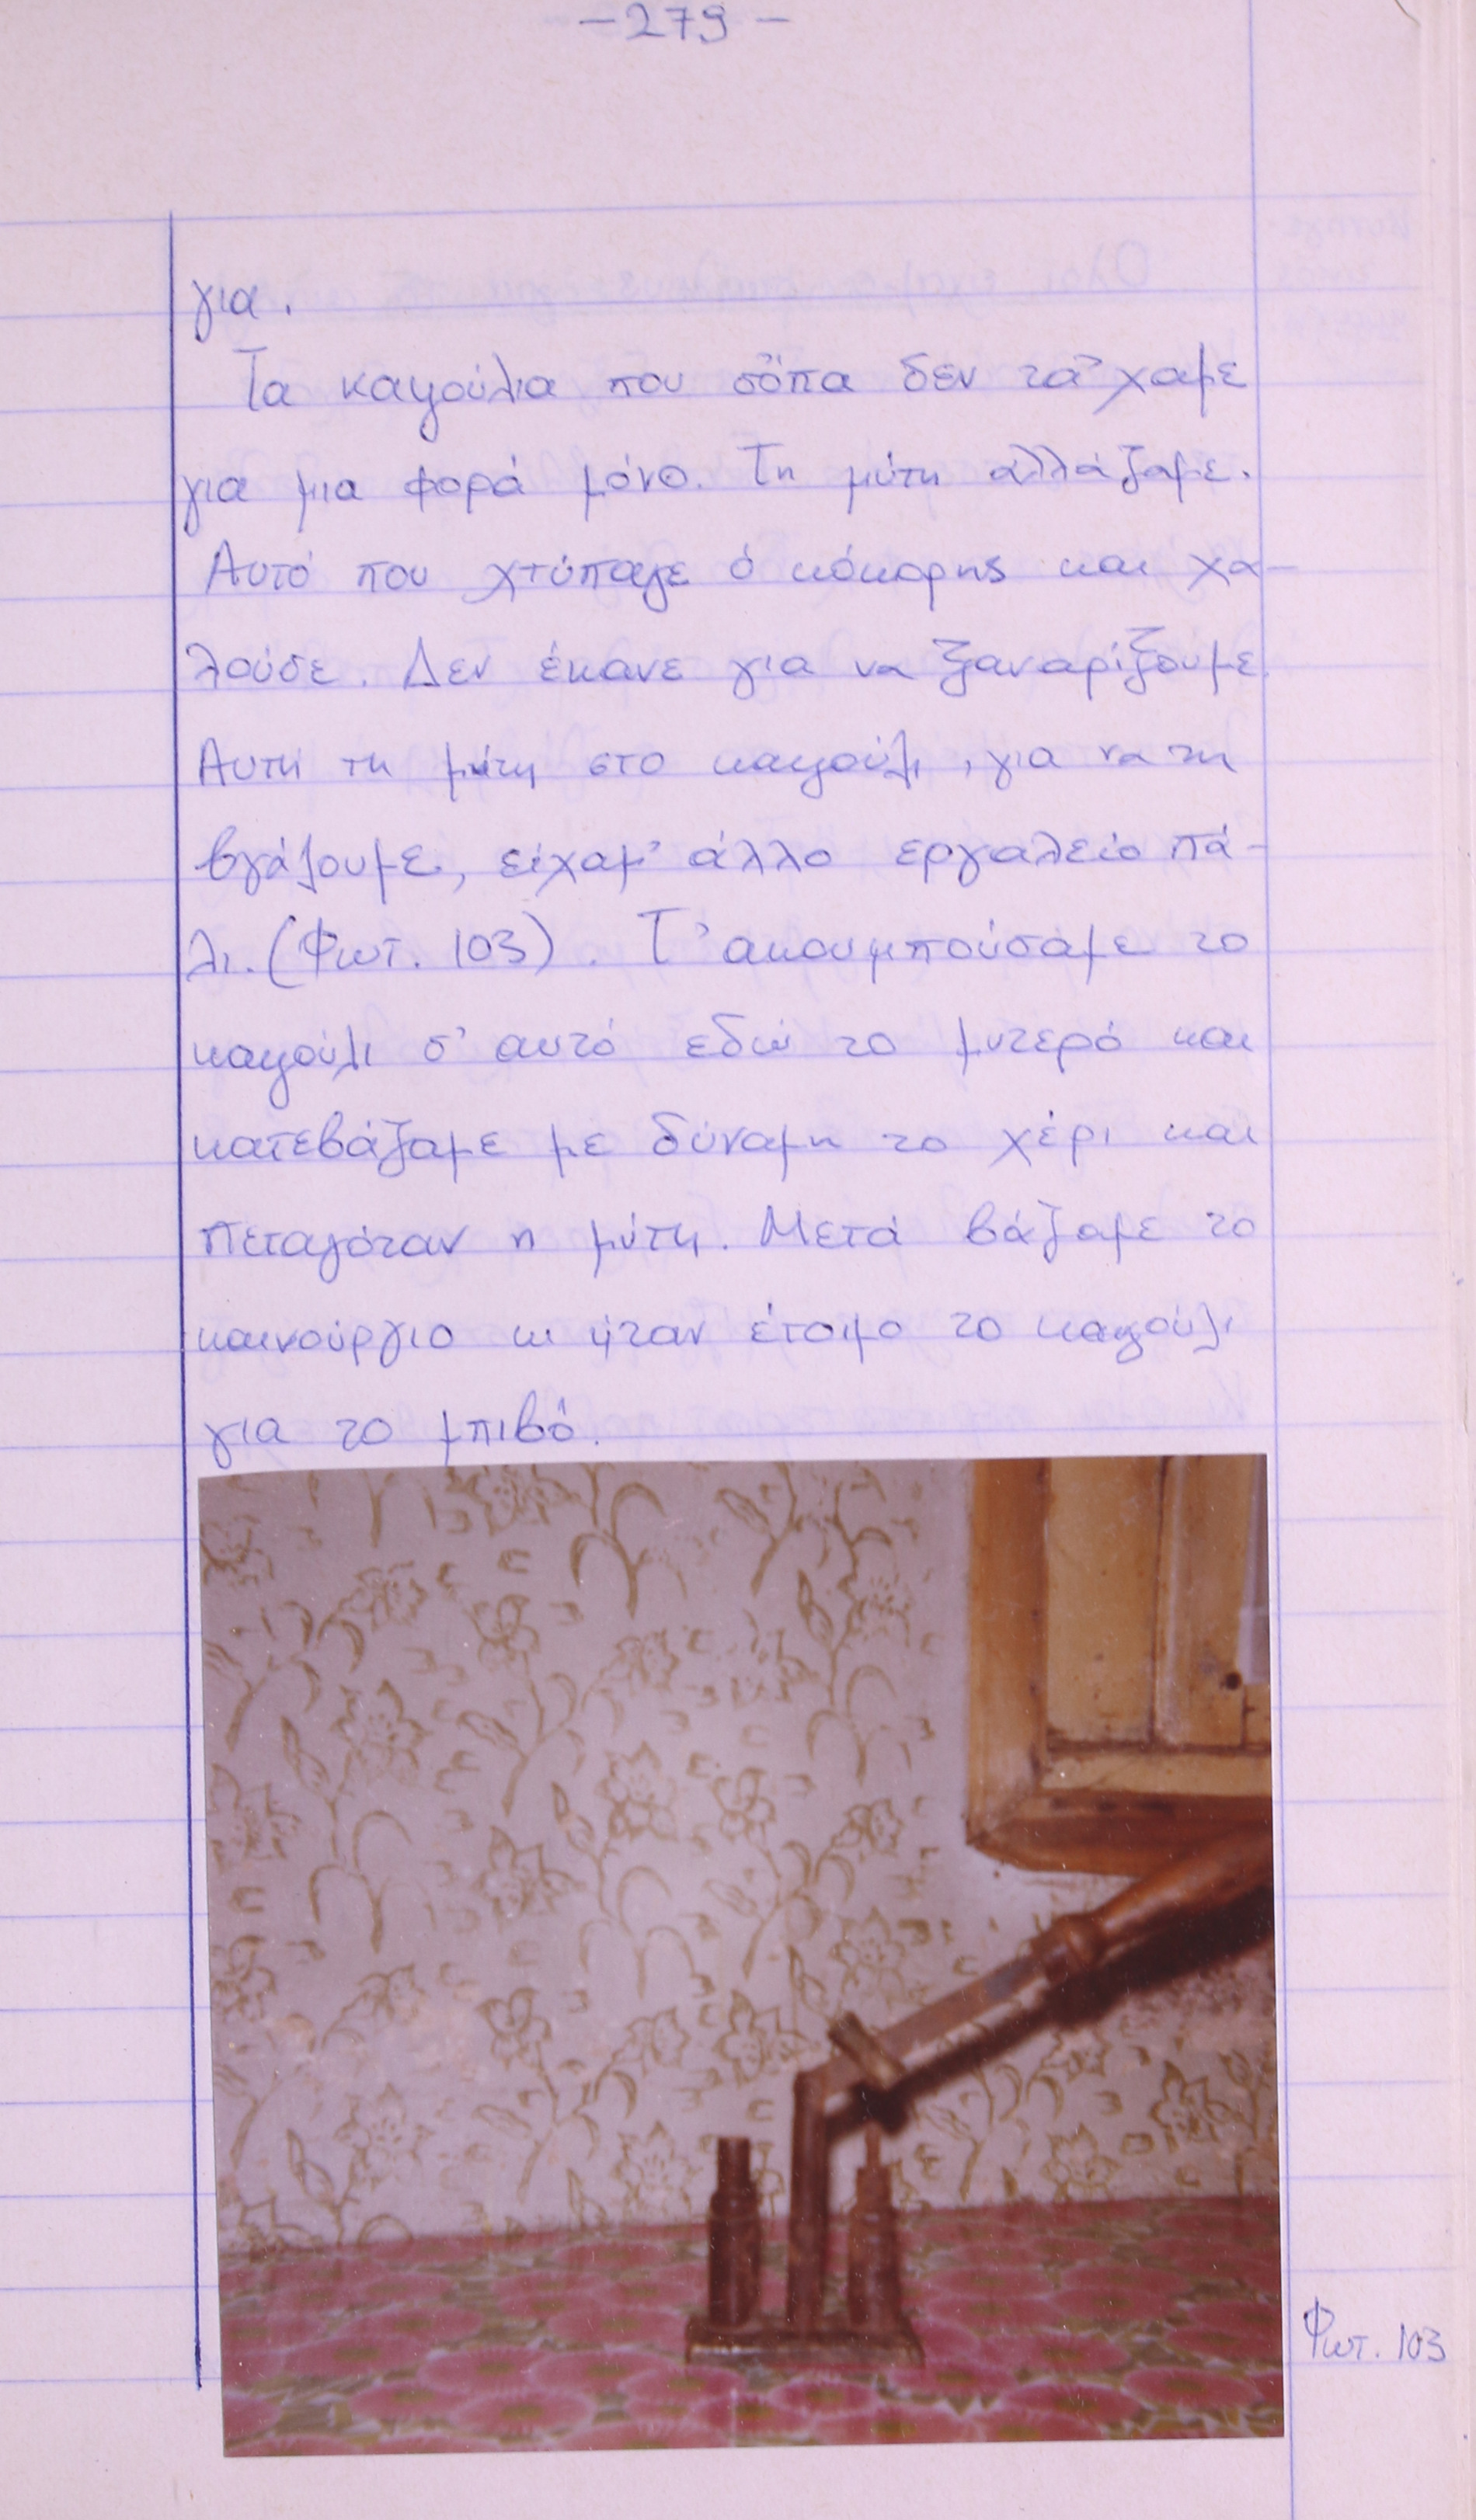 -279-
για.
Τα καψούλια που σόπα δεν τα 'χαμε
για μια φορά μόνο. Τη μύτη αλλάζαμε.
Αυτό που χτύπαγε ό κόκορης και χα-
λούσε. Δεν έκανε για να ξαναρίξουμε.
Αυτή τη μύτη στο καψούλι, για να τη
βγάζουμε, είχαμ' άλλο εργαλείο πά-
λι. (Φωτ. 103). Τ' ακουμπούσαμε το
καψούλι σ' αυτό εδώ το μυτερό και
κατεβάζαμε με δύναμη το χέρι και
πεταγόταν η μύτη. Μετά βάζαμε το
καινούργιο κι ήταν έτοιμο το καψούλι
για το μπιβό.
Φωτ. 103